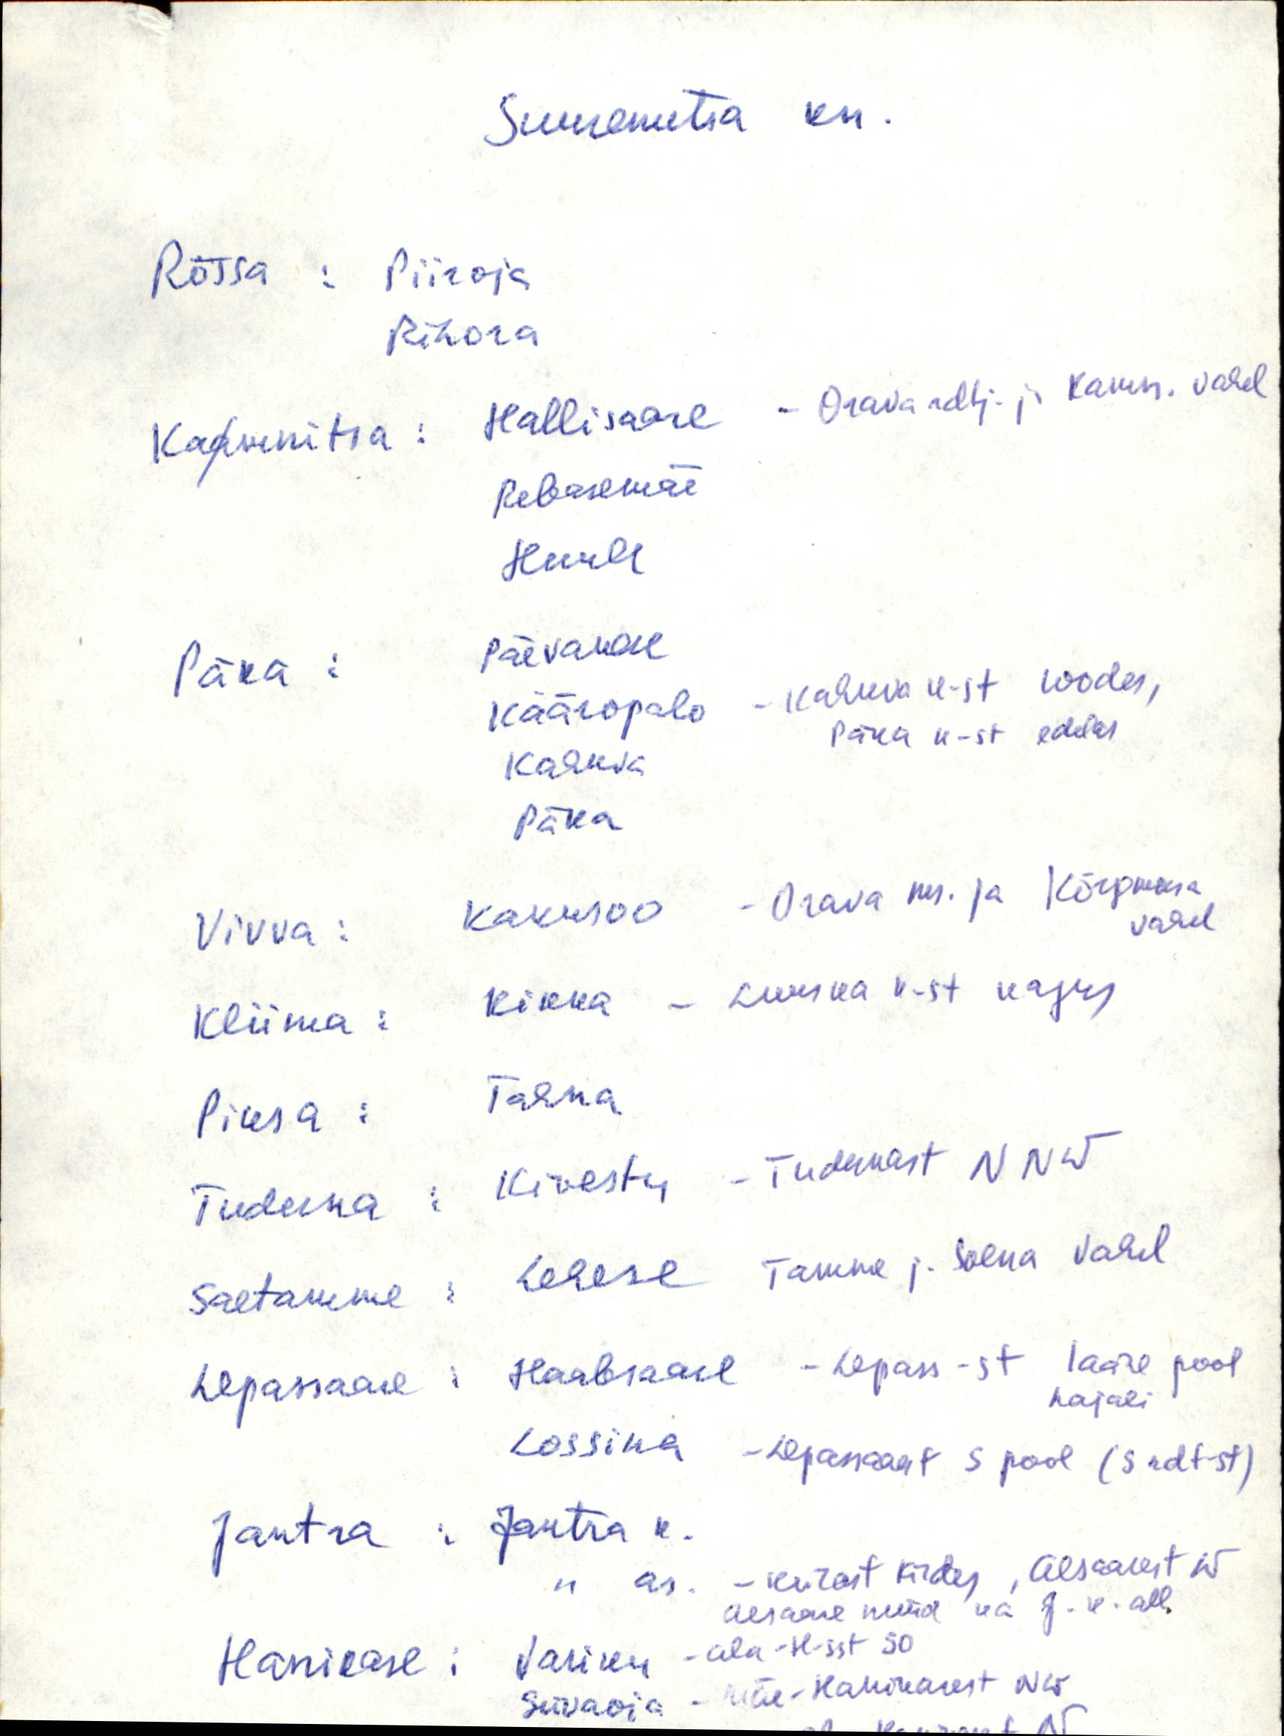 Suuremetsa kn.
Rõssa : Piiroja
Rihora
Kamnitsa : Hallisaare - Orava rdtj. ja Kamn. vahel
Rebasemäe
Hurda
Päka : Päevakese
Kääropalo - Kahkva k-st loodes,
Päka k-st edelas
Kahkva
Päka
Vivva : Kakusoo - Orava ms. ja Kõrgemetsa
vahel
Kliima : Kikka - Luuska k-st kagus
Piusa : Tahka
Tuderna : Kivestu - Tudernast NNW
Saetamme : Lehese Tamme j. Soena vahel
Lepassaare : Haabsaare - Lepass-st lääne pool
hajali
Lossika - Lepassaarest S pool (S rdt-st)
Jantra : Jantra k.
" as. - kirdes, Alsaarest W
Alsaare nüüd ka J. k. all.
Hanikase : Variku - Ala-H-sst SO
Suvaoja - Mäe-Hanikasest NW